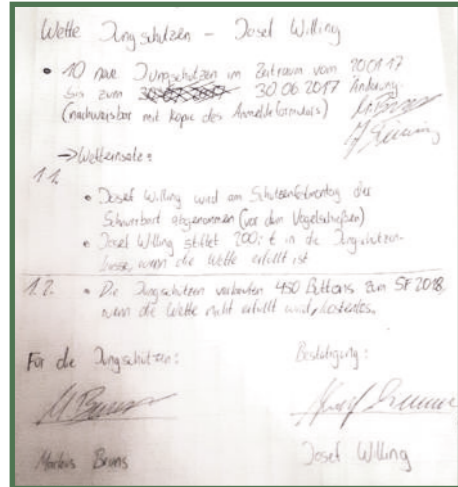 Wette Jungschützen - Josef Willing
• 10 neue Jungschützen im Zeitraum vom 20.01.17
bis zum 30.06.2017 Änderung:
(nachweisbar mit Kopie des Anmeldeformulars) M. Bruns
→ Wetteinsatz:
1.1.
• Josef Willing wird am Schützenfestmontag der
Schnurrbart abgenommen (vor dem Vogelschießen)
• Josef Willing stiftet 200,- € in die Jungschützen-
kasse, wenn die Wette erfüllt ist
1.2. • Die Jungschützen verkaufen 450 Buttons zum SF 2018,
wenn die Wette nicht erfüllt wird, kostenlos.
Für die Jungschützen: Bestätigung:
M. Bruns
Markus Bruns Josef Willing